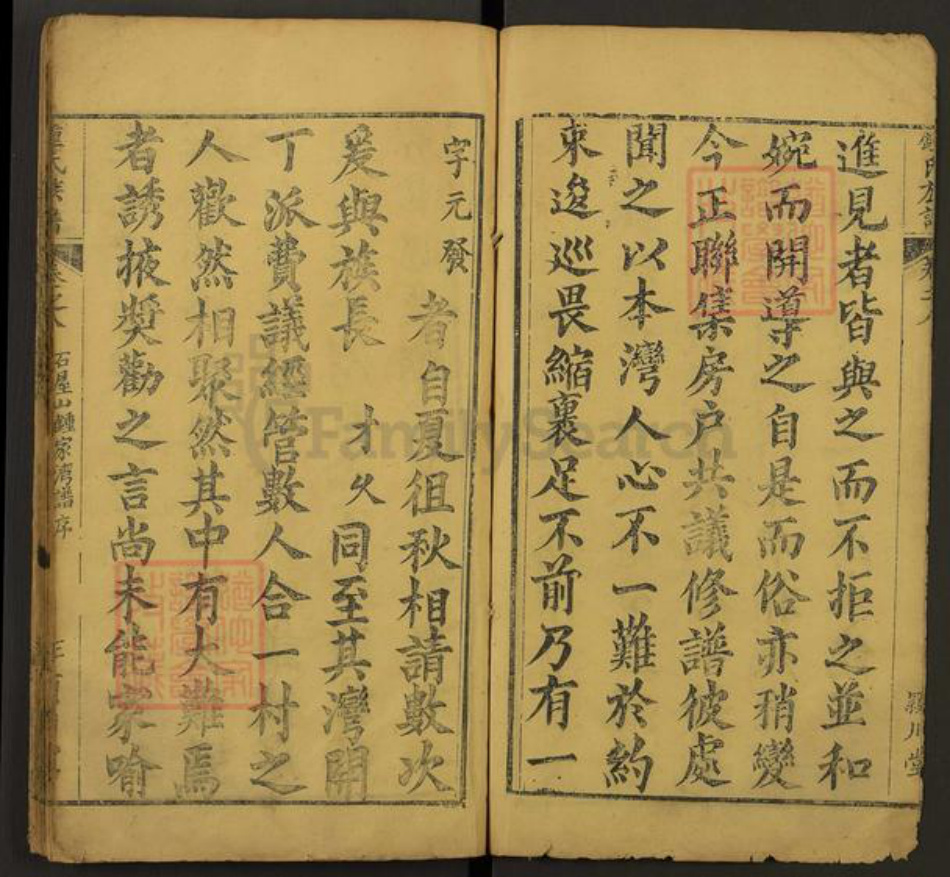 進見者皆與之而不拒之並和
婉而開導之自是而俗亦稍變
今正聯集房户共議修譜彼處
聞之以本灣人心不一難於約
束逡巡畏縮裹足不前乃有一
字元發
者自夏徂秋相請數次
爰與族長
才久
同至其灣開
丁派費議經管數人合一村之
人歡然相聚然其中有大難焉
者誘掖奬勸之言尚未能家喻
鍾氏族譜
卷之八
潁川堂
石屋山鍾家湾譜序
FamilySearch